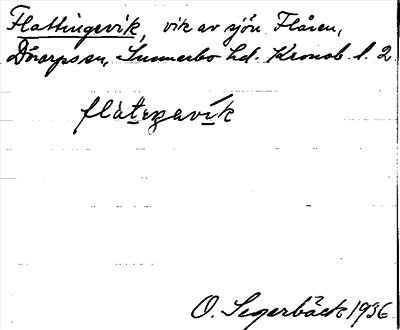 Flattingsvik, vik av sjön Flåren,
Dörarpssn, Sunnerbo hd. Kronob. l. 2
O. Segerbäck 1936